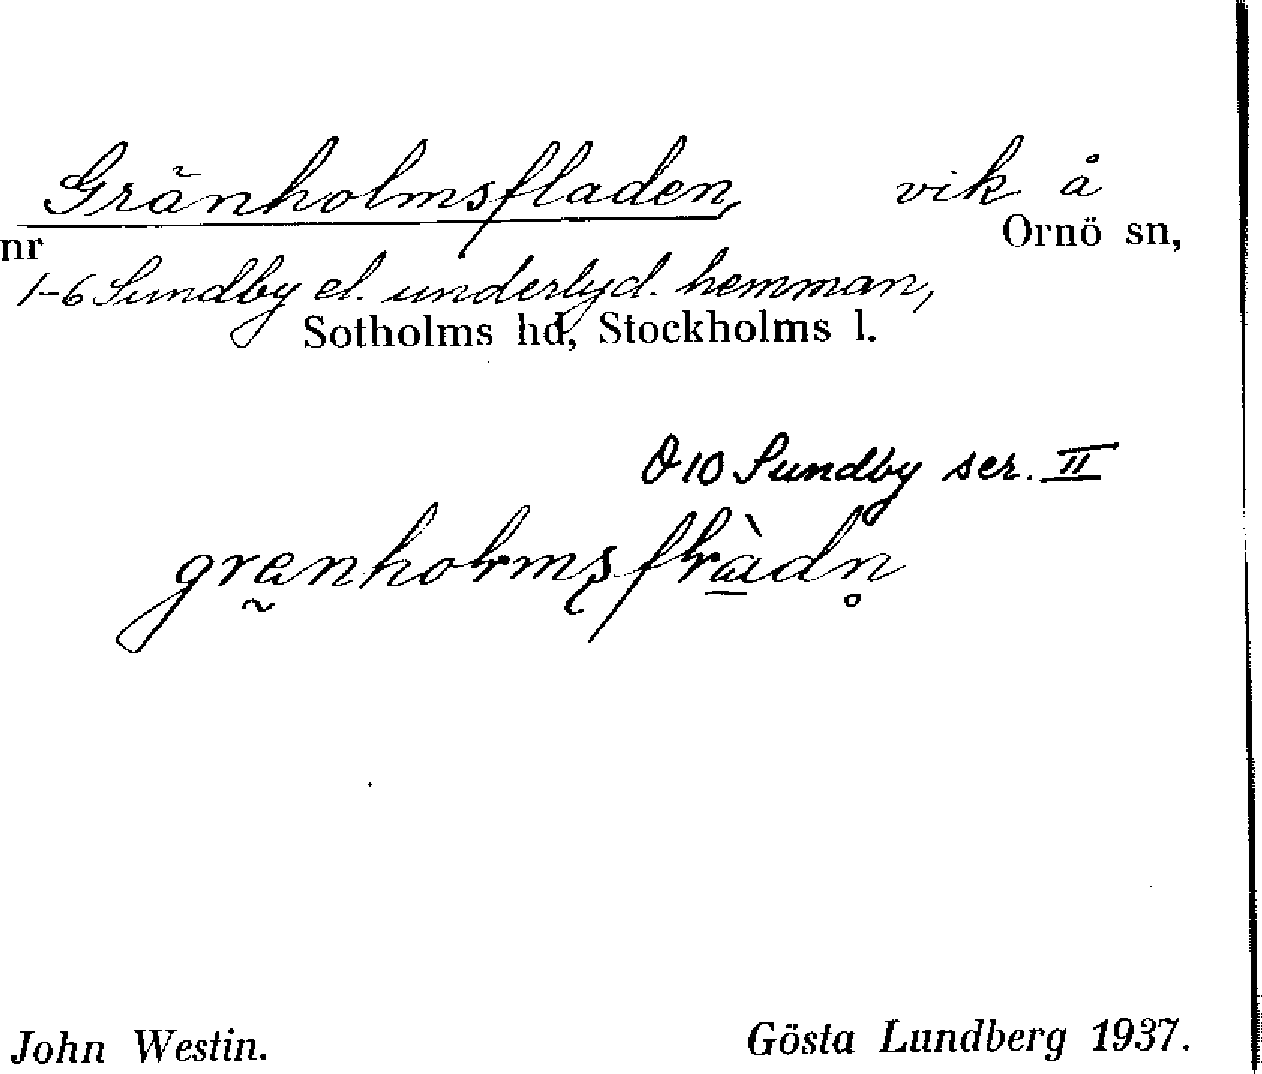 Gränholmsfladen, vik å
nr Ornö sn,
1-6 Sundby el. underlyd. hemman,
Sotholms hd, Stockholms l.
Ö10 Sundby ser. II
grænholmsflàdn̥
John Westin. Gösta Lundberg 1937.